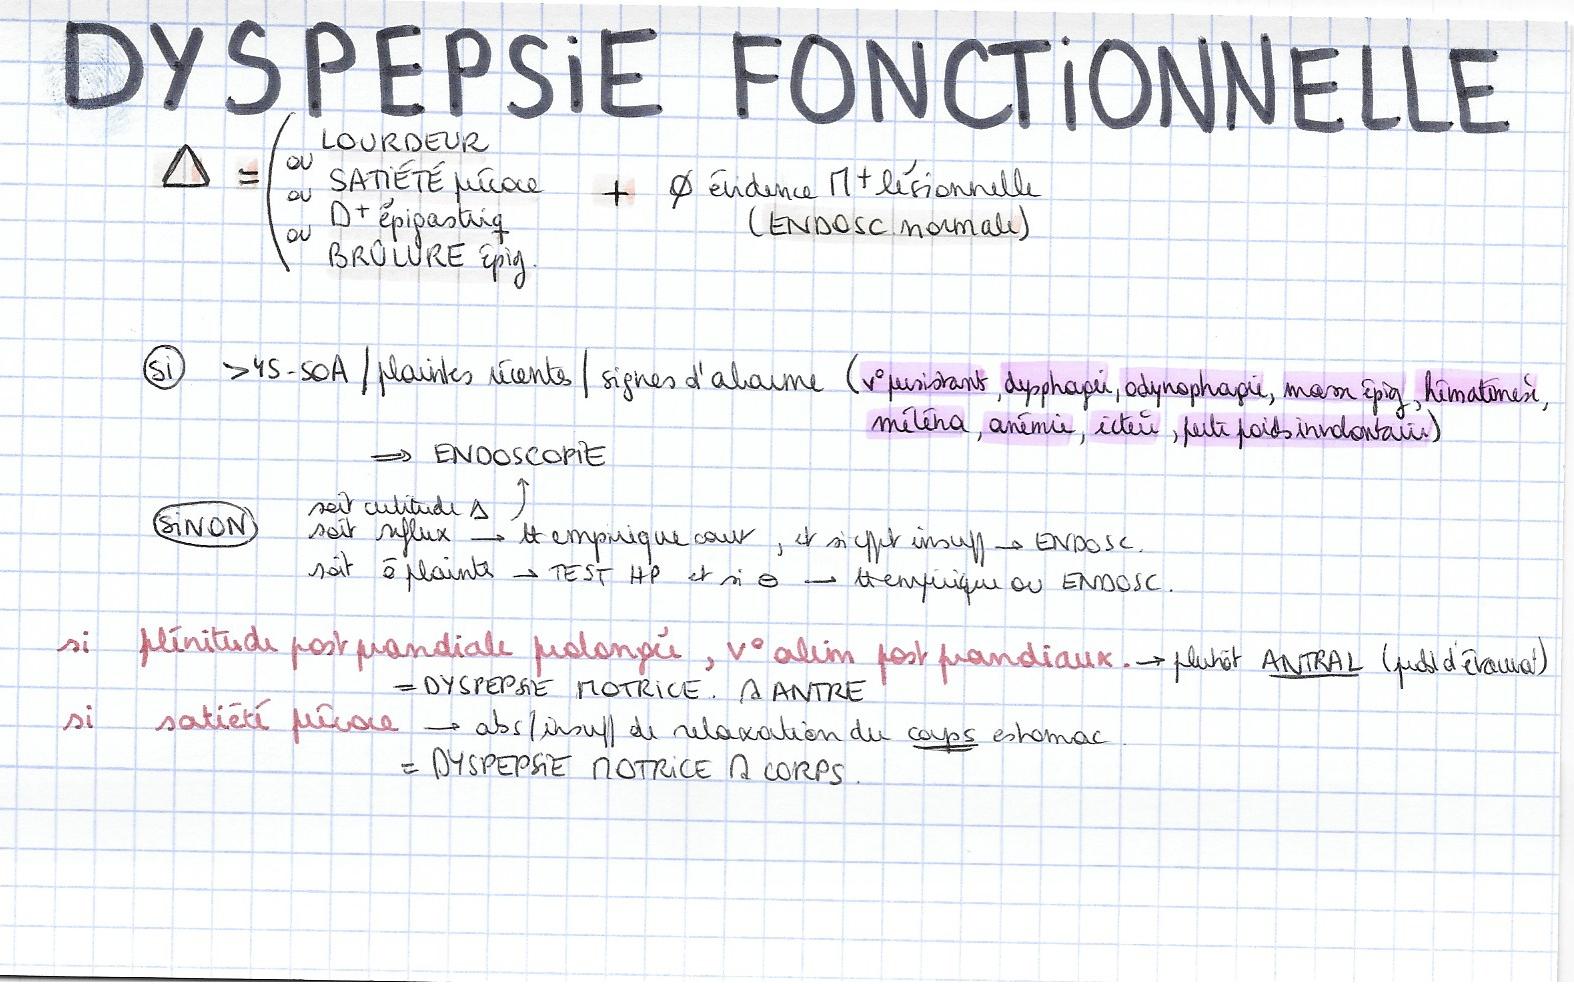 DYSPEPSIE FONCTIONNELLE
Δ = ( LOURDEUR
ou SATIÉTÉ précoce + Ø évidence M+ lésionnelle
ou D+ épigastriq (ENDOSC normale)
ou BRÛLURE épig.
si >45-50A / plaintes récentes / signes d'alarme (v° persistant, dysphagie, odynophagie, masse épig, hématémèse,
méléna, anémie, ictère, perte poids involontaire)
⇒ ENDOSCOPIE
SINON soit certitude Δ ↑
soit reflux → tt empirique court, et si effet insuff → ENDOSC.
soit plainte → TEST HP et si ⊖ → tt empirique ou ENDOSC.
si plénitude postprandiale prolongée, v° alim postprandiaux. → plutôt ANTRAL (pbl d'évacuat°)
= DYSPEPSIE MOTRICE. ANTRE
si satiété précoce → abs/insuff de relaxation du corps estomac.
= DYSPEPSIE MOTRICE CORPS.